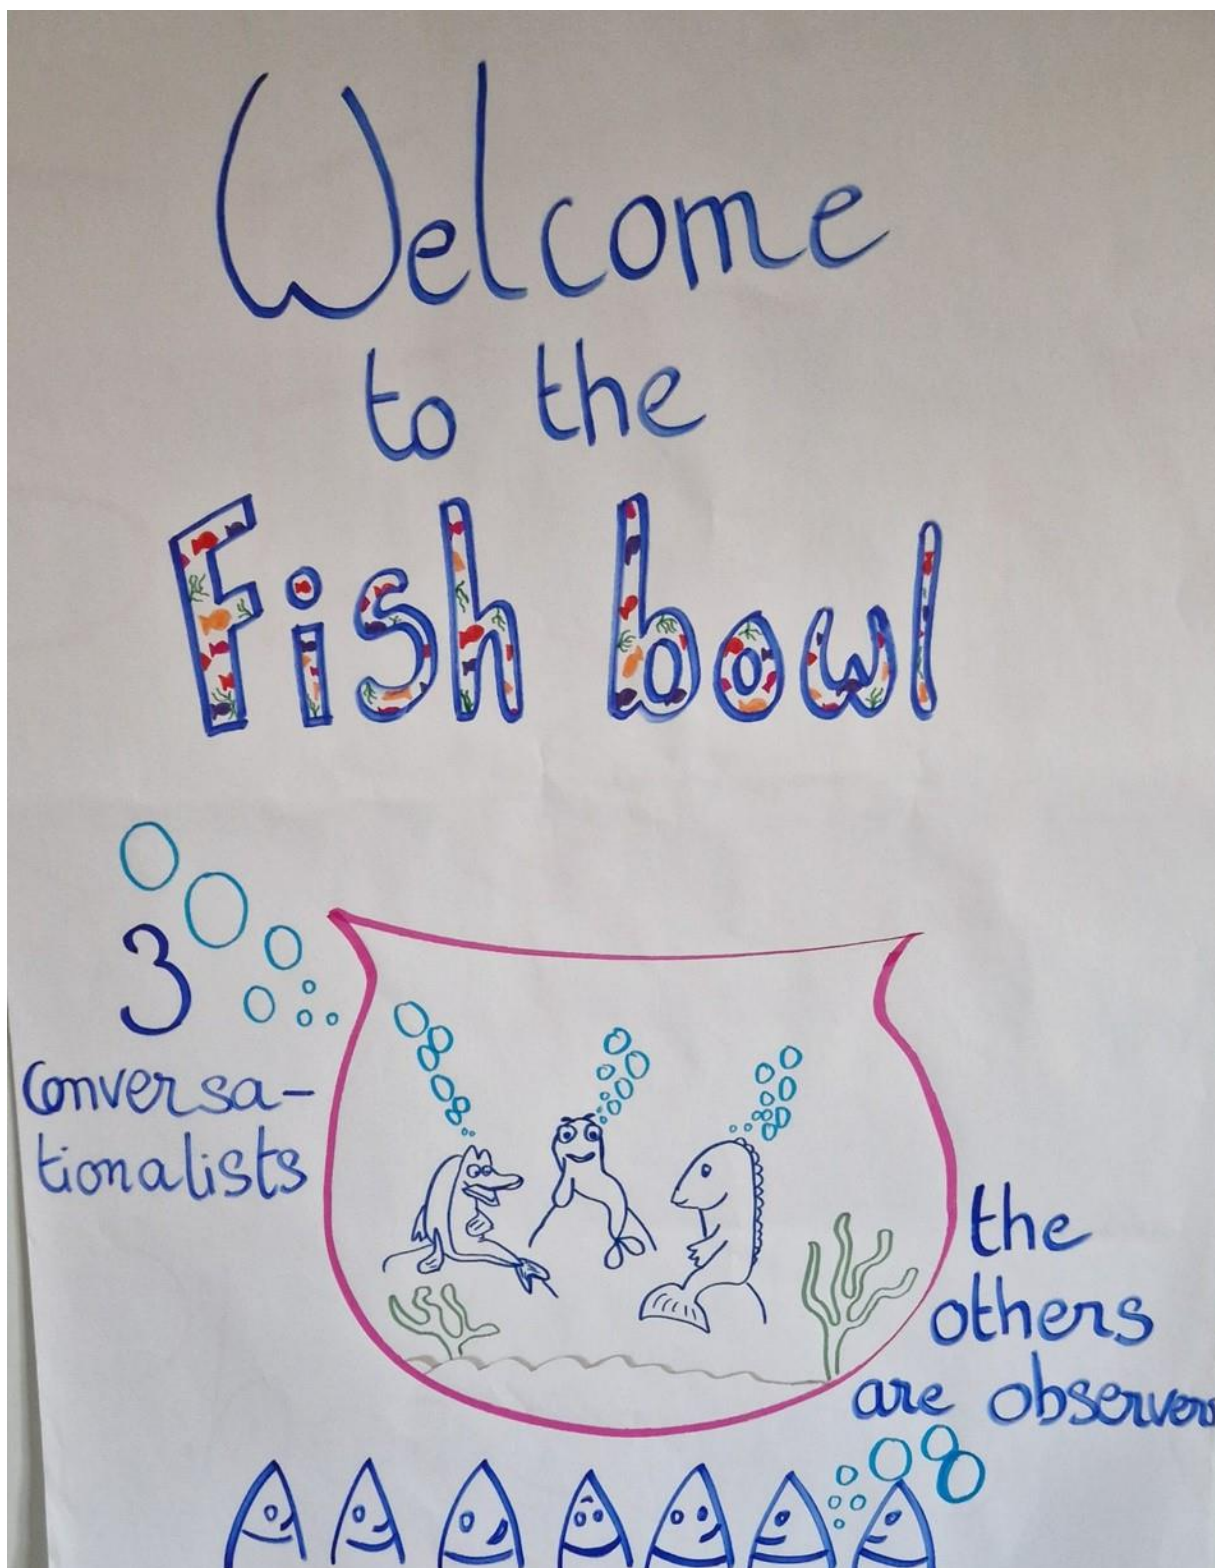 Welcome
to the
Fish bowl
3
Conversa-
tionalists
the
others
are observers